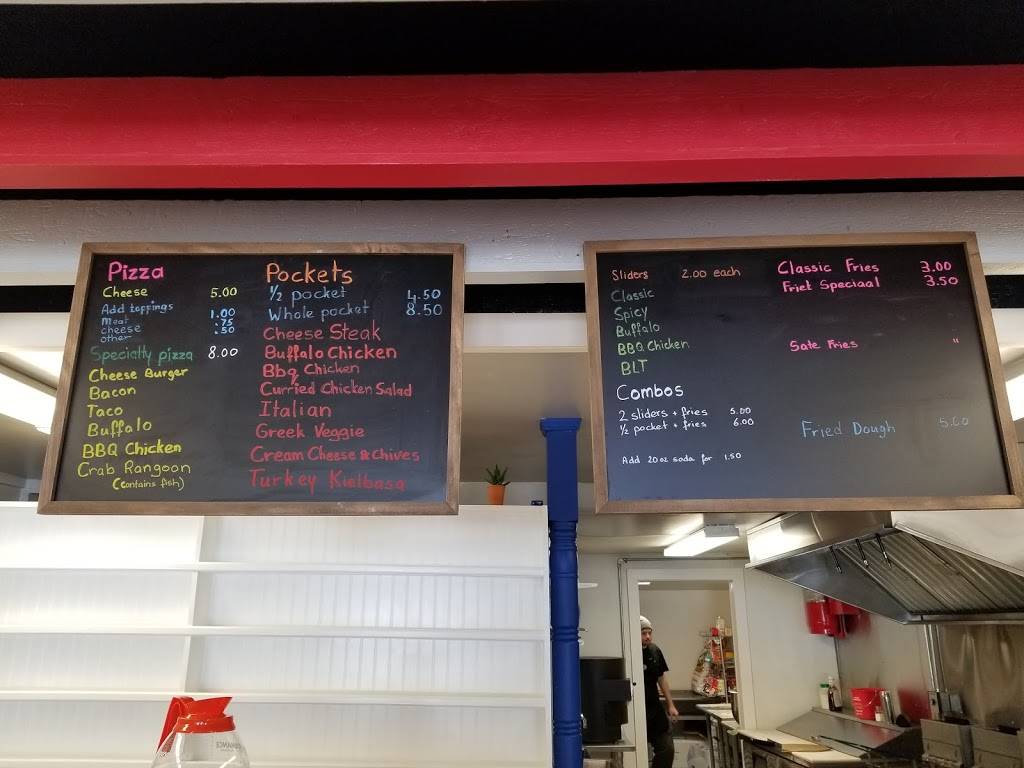 Pizza
Cheese 5.00
Add toppings 1.00
Meat .75
cheese .50
other
Specialty pizza 8.00
Cheese Burger
Bacon
Taco
Buffalo
BBQ Chicken
Crab Rangoon
(contains fish)
Pockets
1/2 pocket 4.50
Whole pocket 8.50
Cheese Steak
Buffalo Chicken
Bbq Chicken
Curried Chicken Salad
Italian
Greek Veggie
Cream Cheese & Chives
Turkey Kielbasa
Sliders 2.00 each
Classic
Spicy
Buffalo
BBQ Chicken
BLT
Combos
2 sliders + fries 5.00
1/2 pocket + fries 6.00
Add 20oz soda for 1.50
Classic Fries 3.00
Friet Speciaal 3.50
Sate Fries "
Fried Dough 5.00